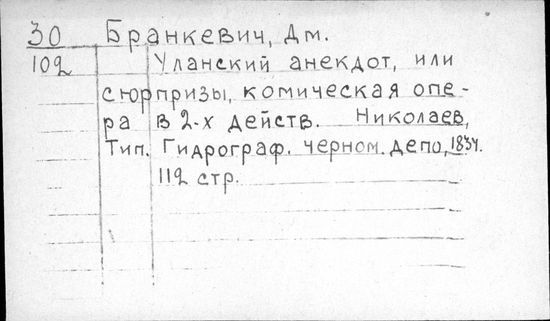 30 Бранкевич, Дм.
102 Уланский анекдот, или
сюрпризы, комическая опе-
ра в 2-х действ. Николаев,
Тип. Гидрограф. черном. депо, 1834.
112 стр.